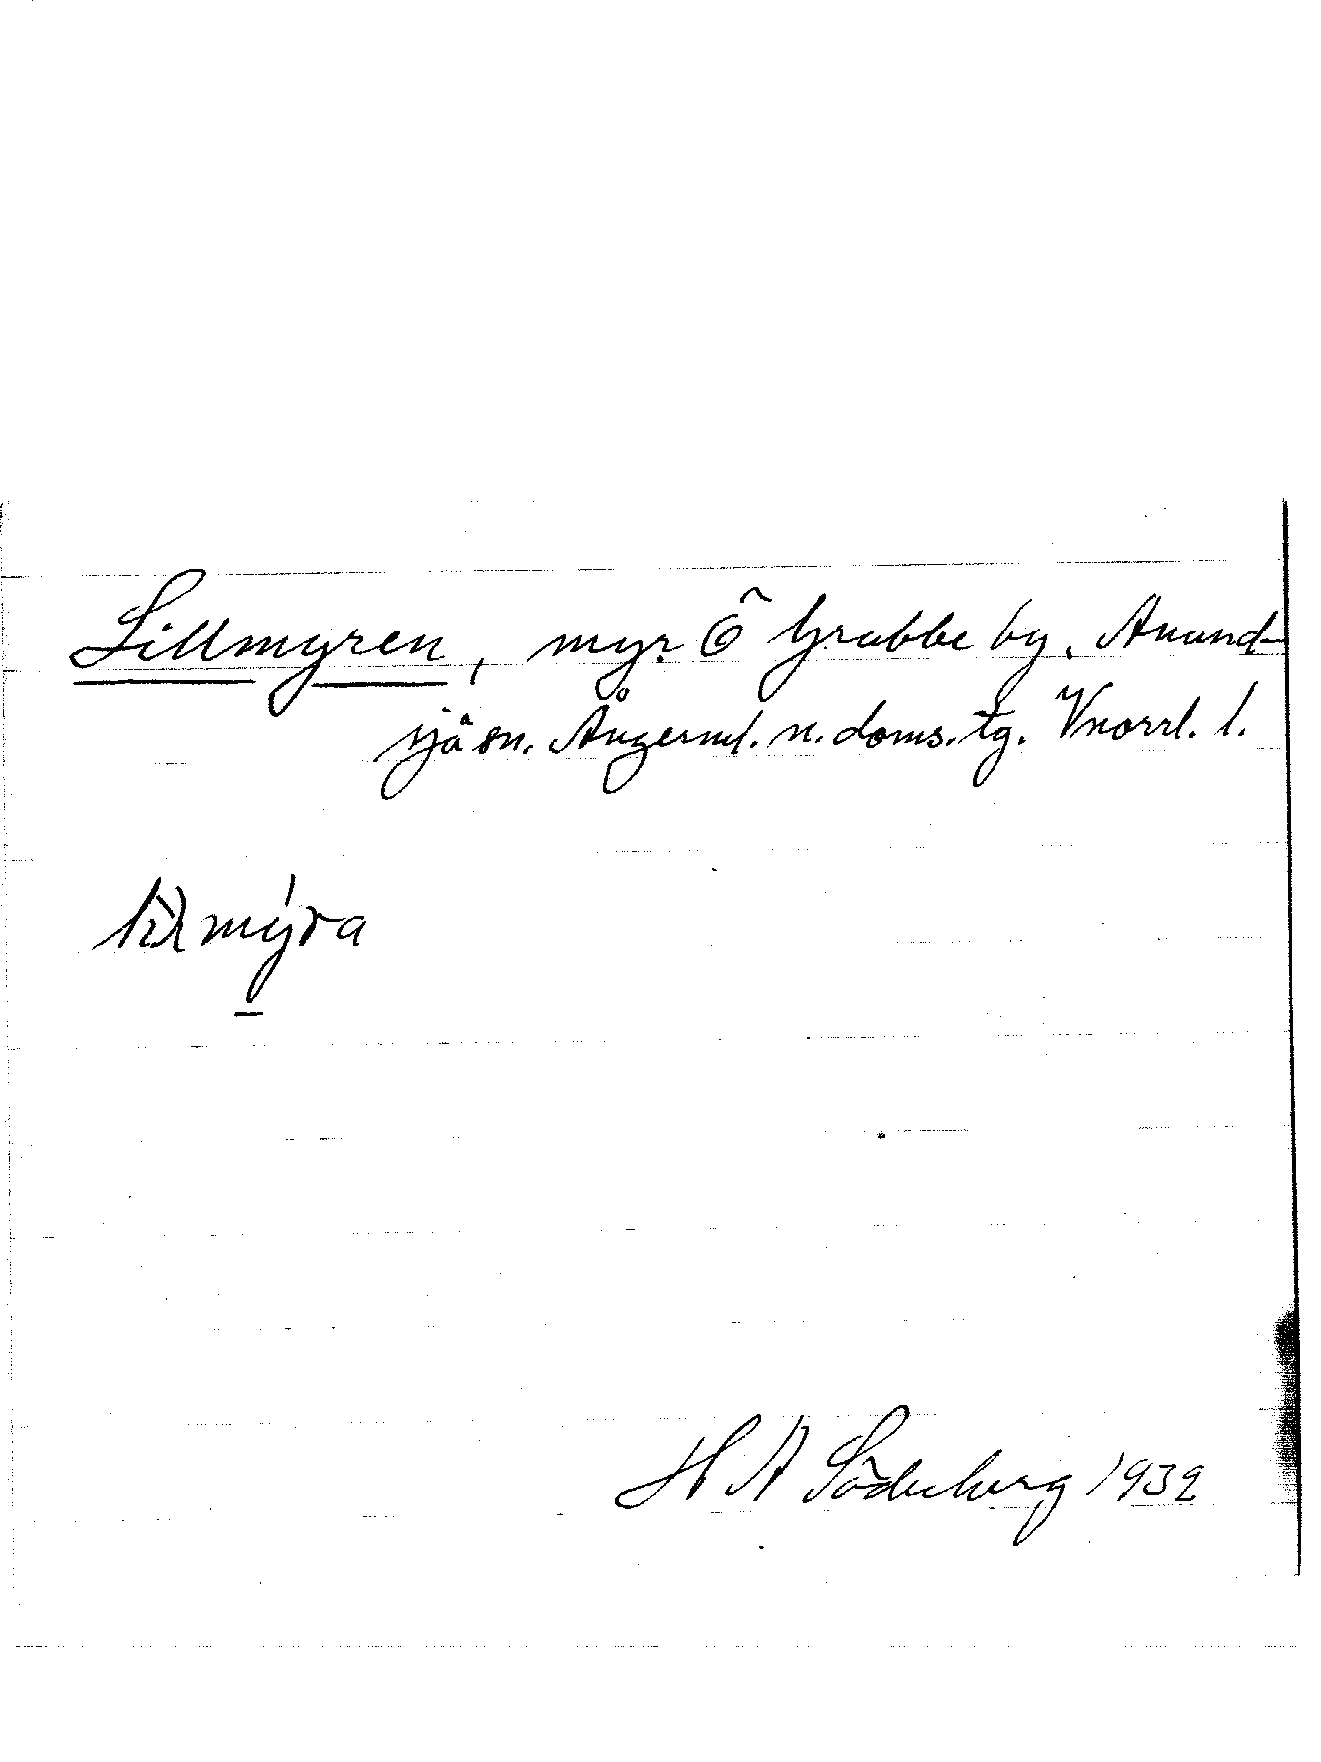 Lillmyren, myr. Ö Grubbe by, Anund-
sjö sn. Ångerml. n. doms. tg. Vnorrl. l.
H A Söderberg 1932